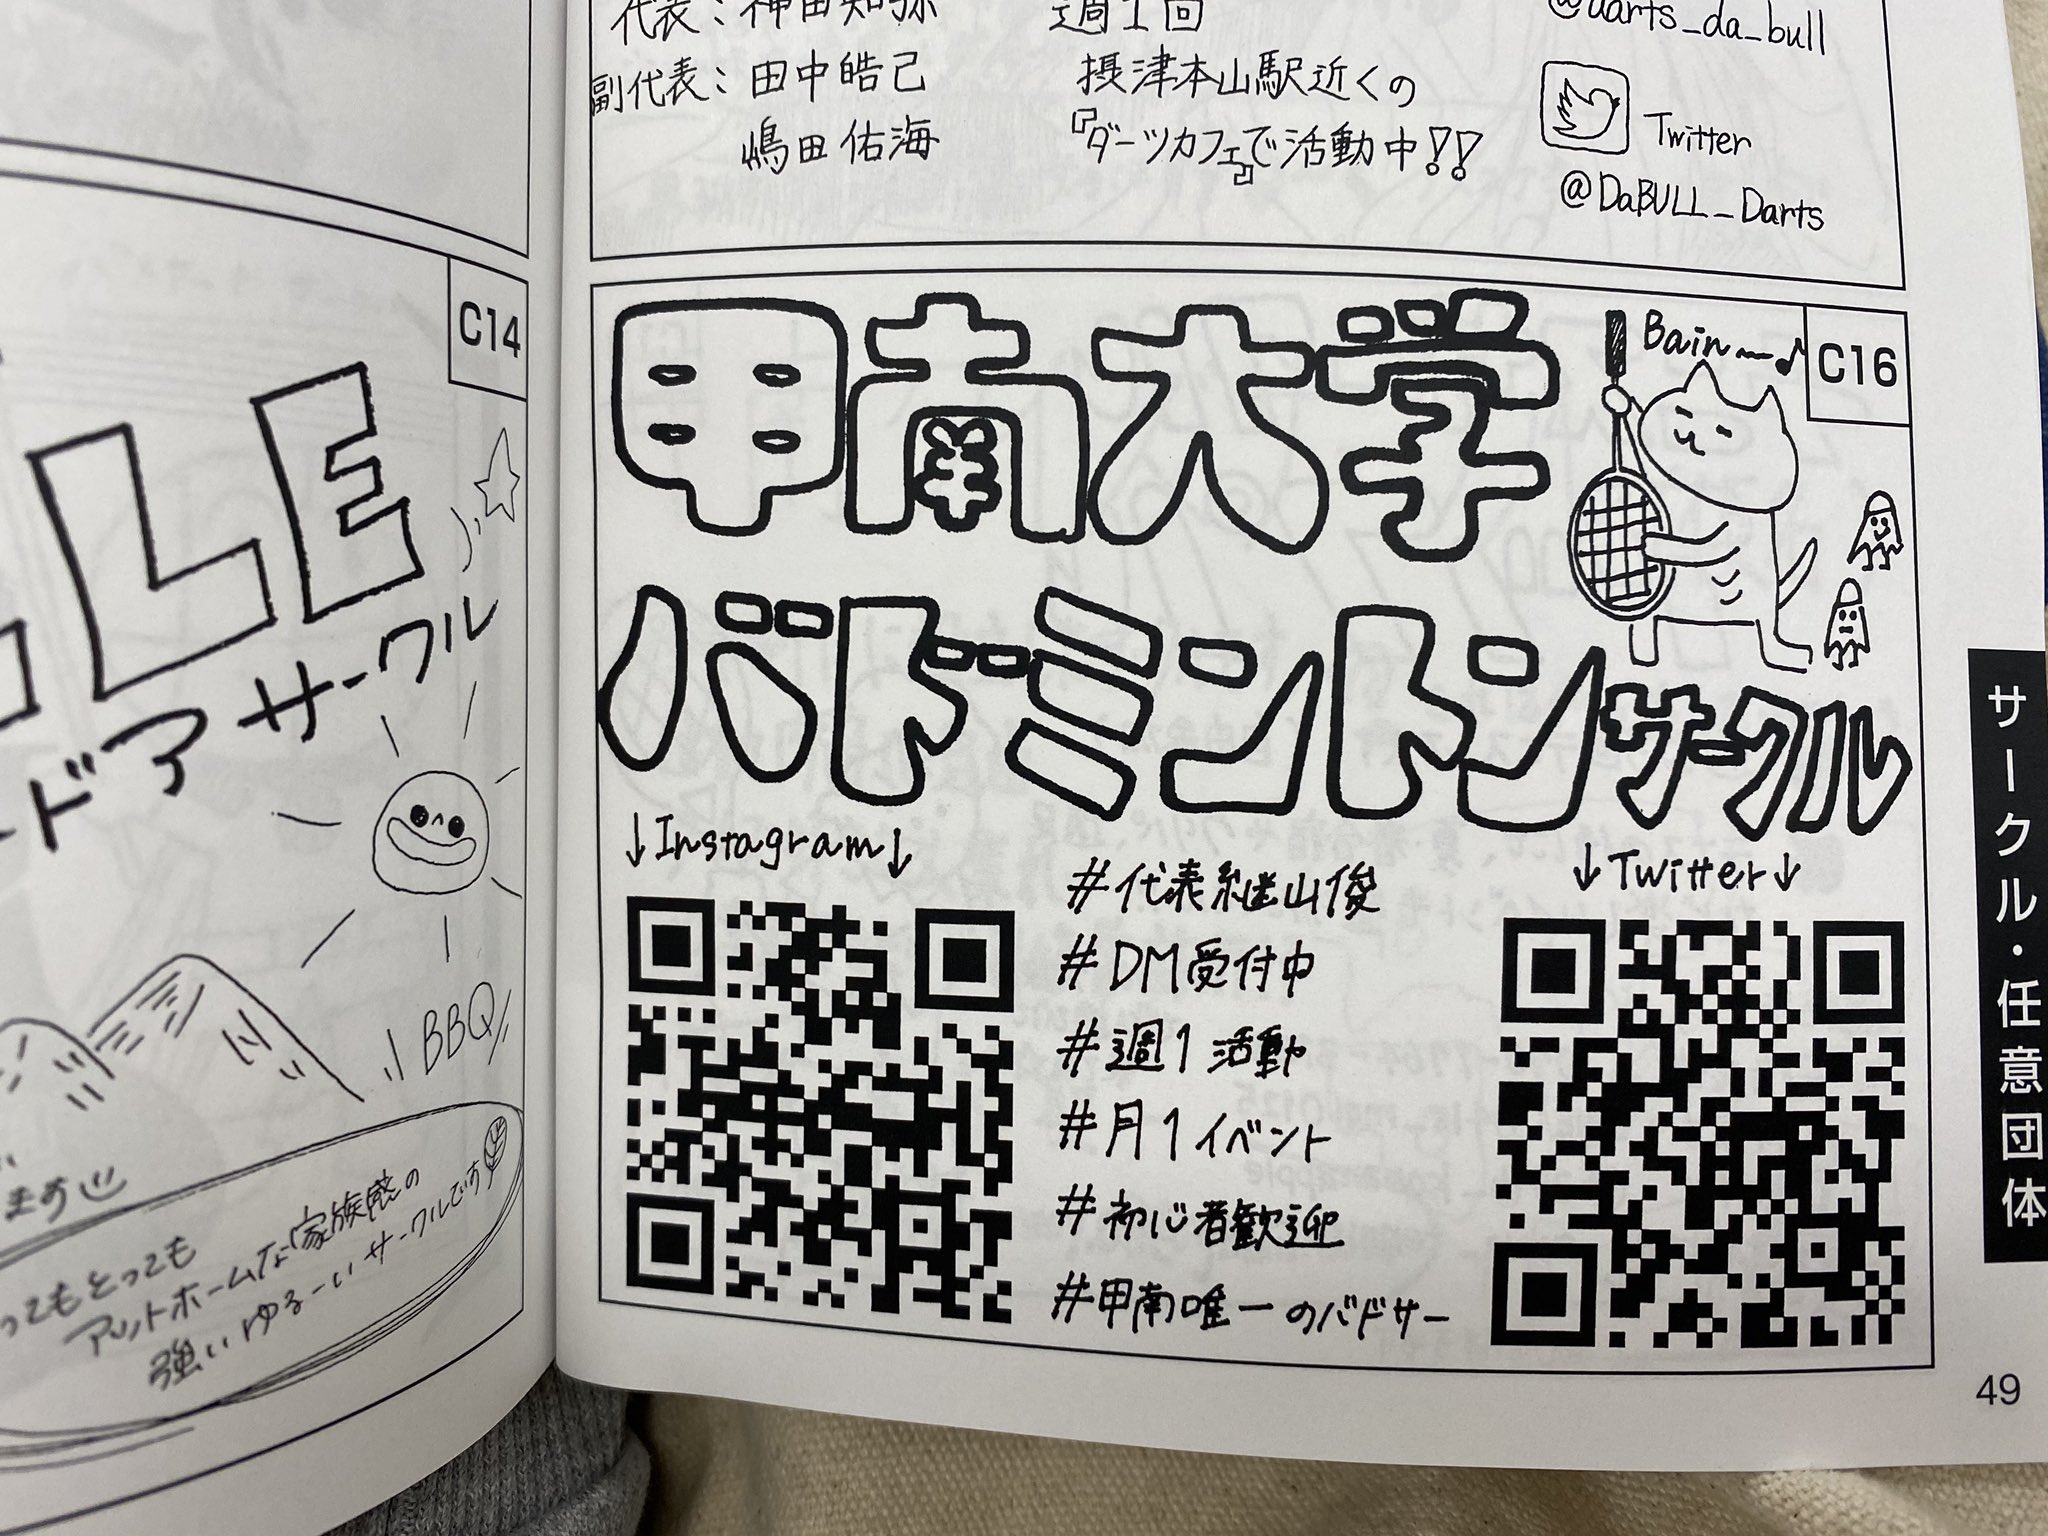 C14
LE
ドアサークル
BBQ
ます
ってもとっても
アットホームな家族感の
強いゆるーいサークルです
代表：神田知弥
副代表：田中皓己
嶋田佑海
週1回
摂津本山駅近くの
『ダーツカフェ』で活動中!!
@darts_da_bull
Twitter
@DaBULL_Darts
C16
Bain〜♪
甲南大学
バドミントンサークル
↓Instagram↓
#代表継山俊
#DM受付中
#週1活動
#月1イベント
#初心者歓迎
#甲南唯一のバドサー
↓Twitter↓
サークル・任意団体
49